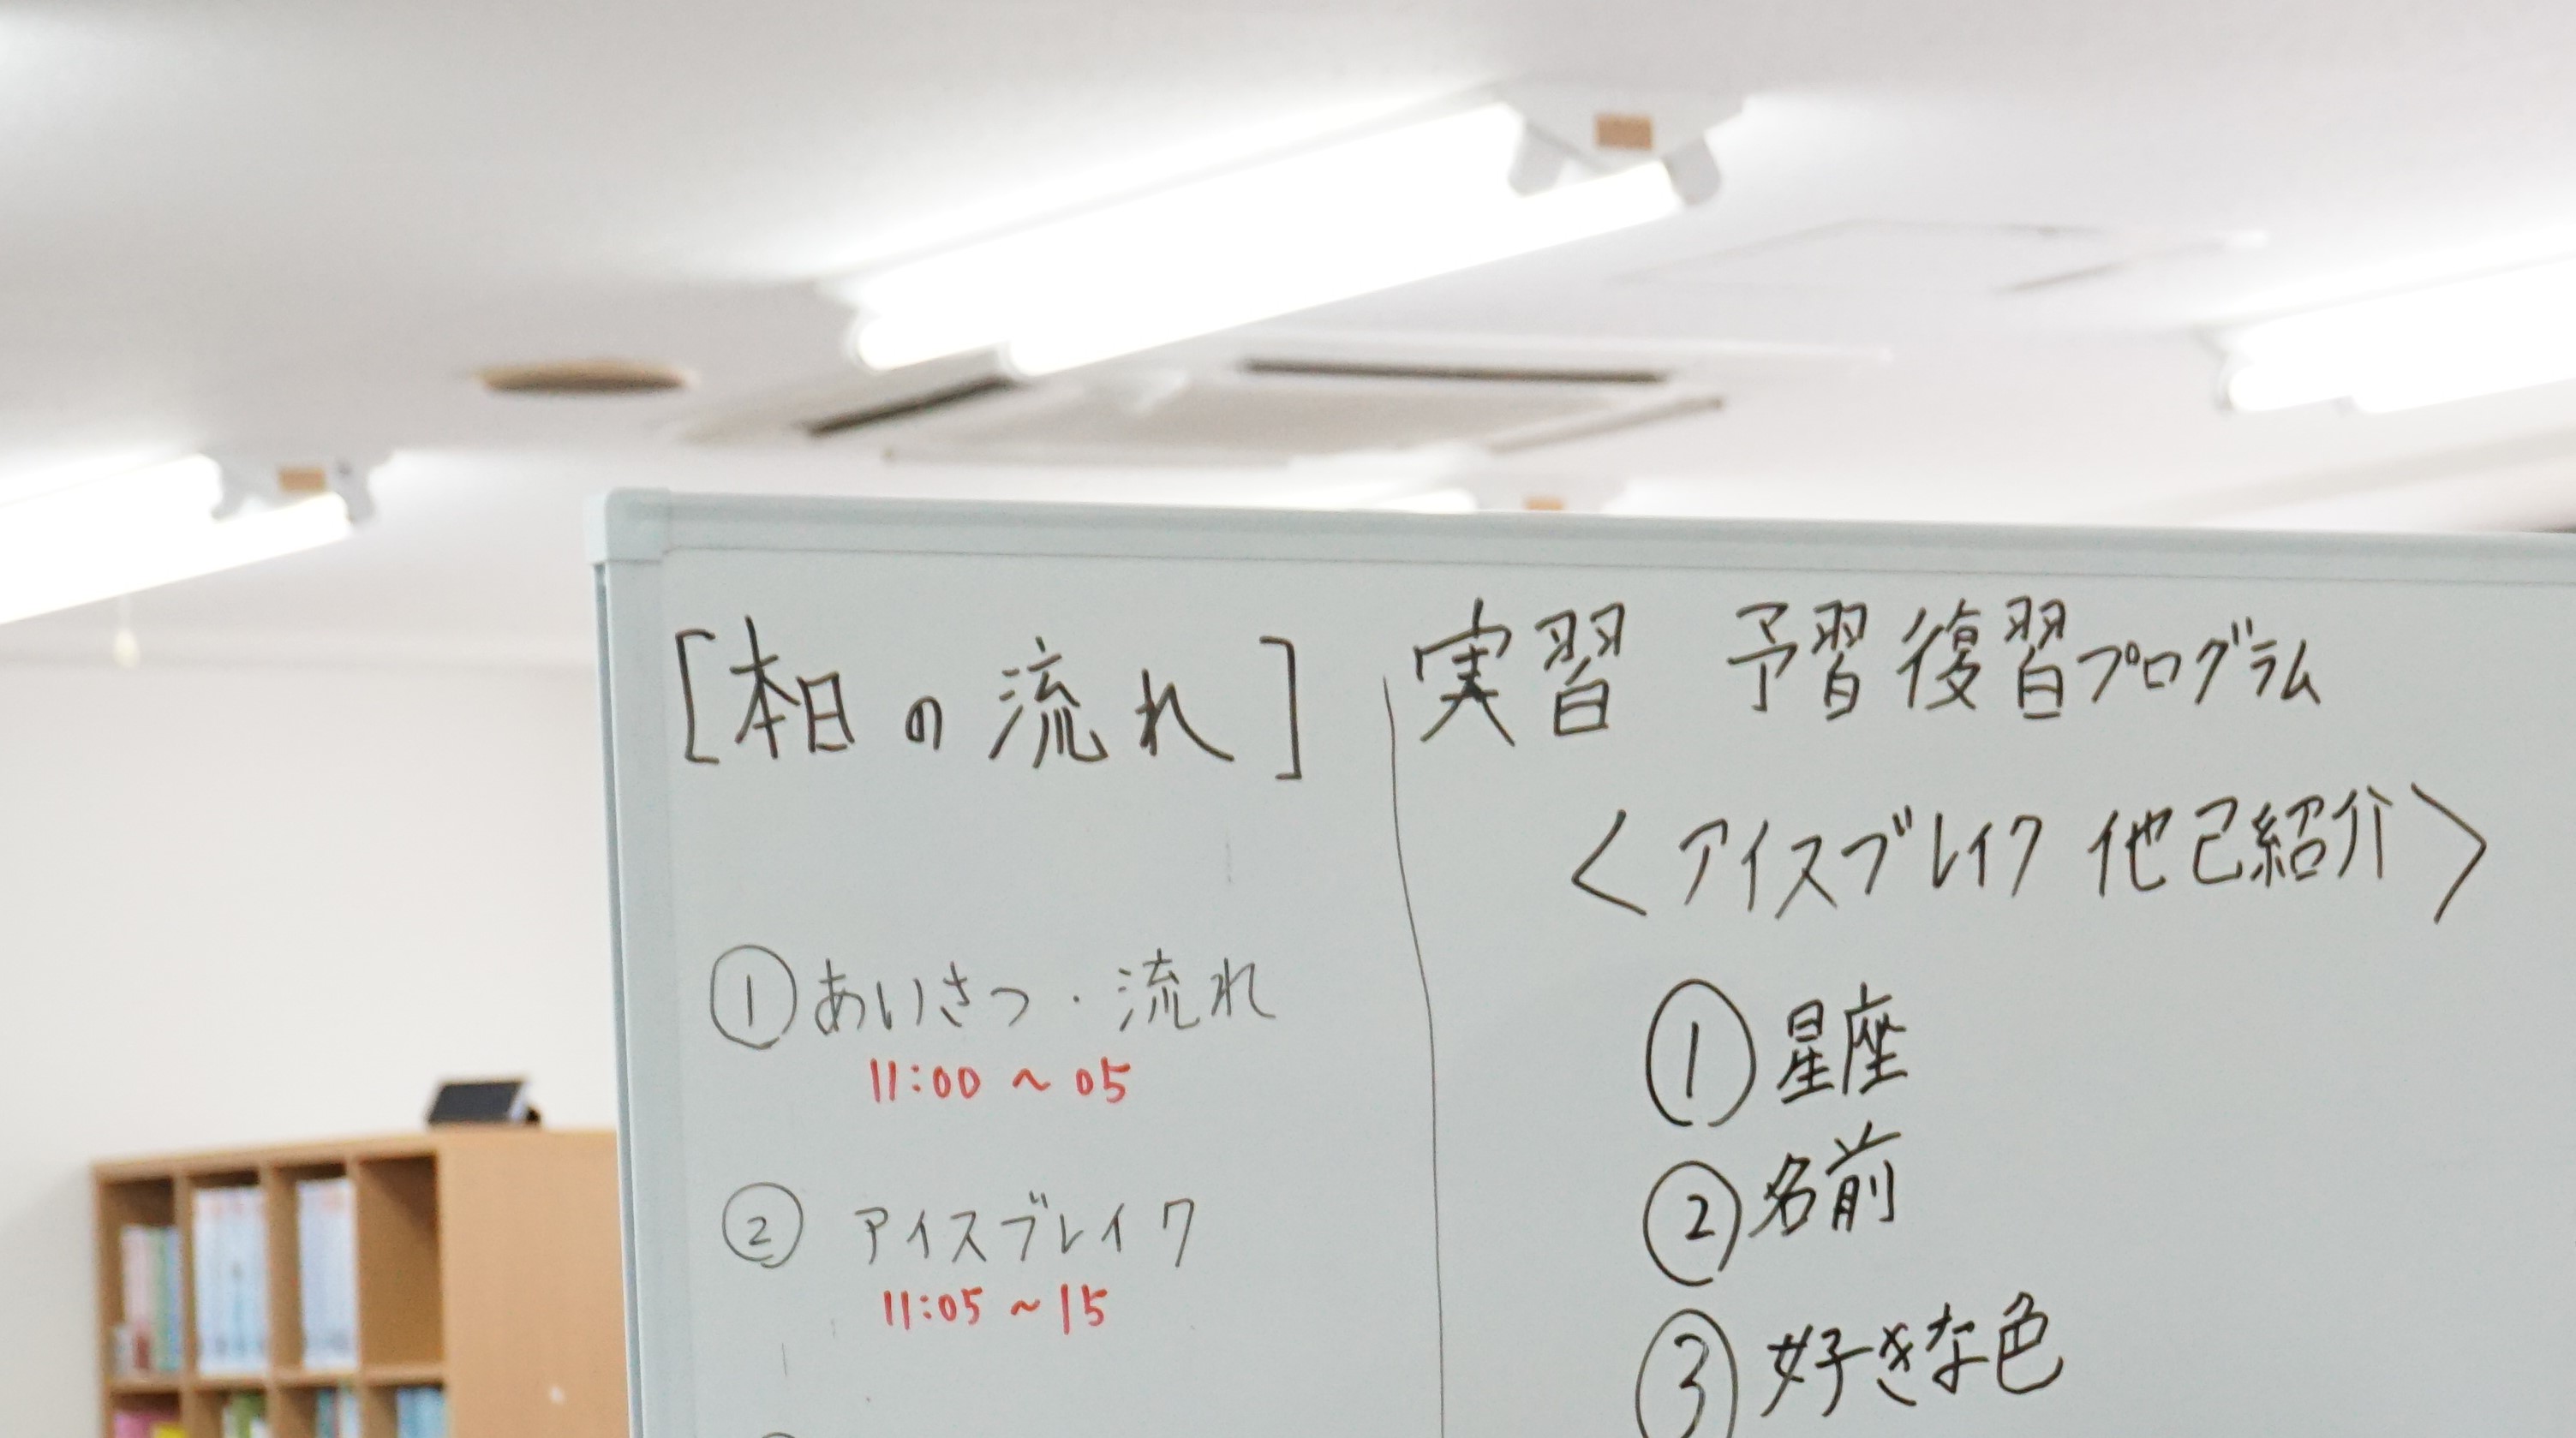 [本日の流れ]
①あいさつ・流れ
11:00～05
② アイスブレイク
11:05～15
実習 予習復習プログラム
＜アイスブレイク 他己紹介＞
①星座
②名前
③好きな色